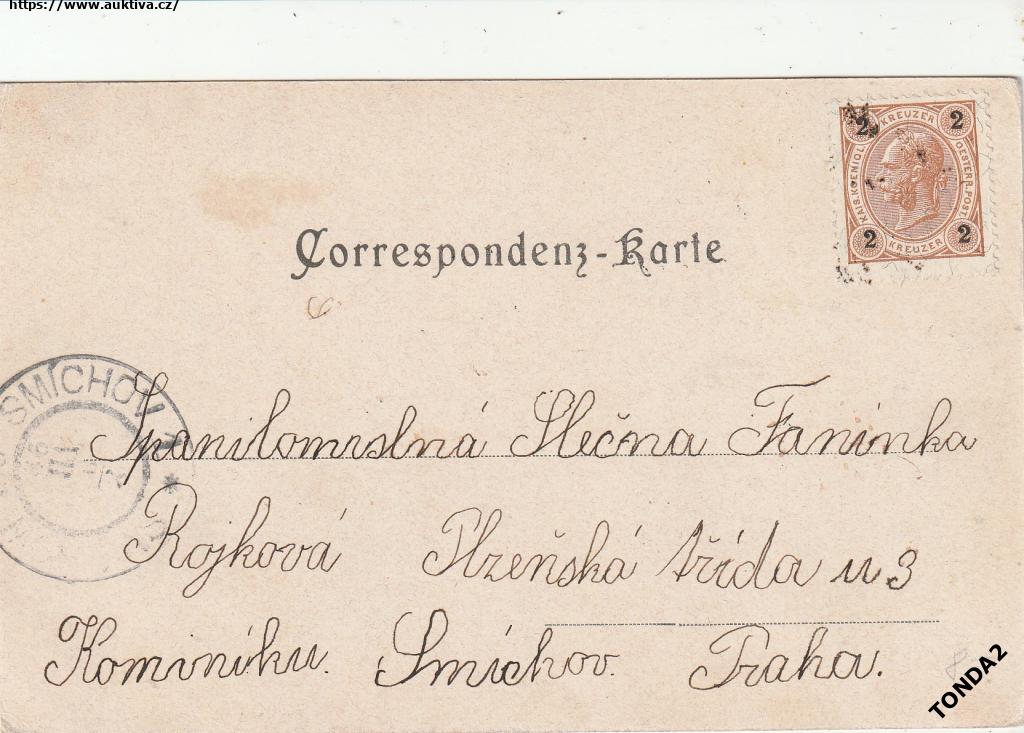 https://www.auktiva.cz/
2 KREUZER 2
KAIS. KOENIGL. OESTERR. POST.
2 KREUZER 2
Correspondenz-Karte
SMÍCHOV
Spanilomislná Slečna Faninka
Rojková Plzeňská třída u 3
Kominíku. Smíchov. Praha.
TONDA2